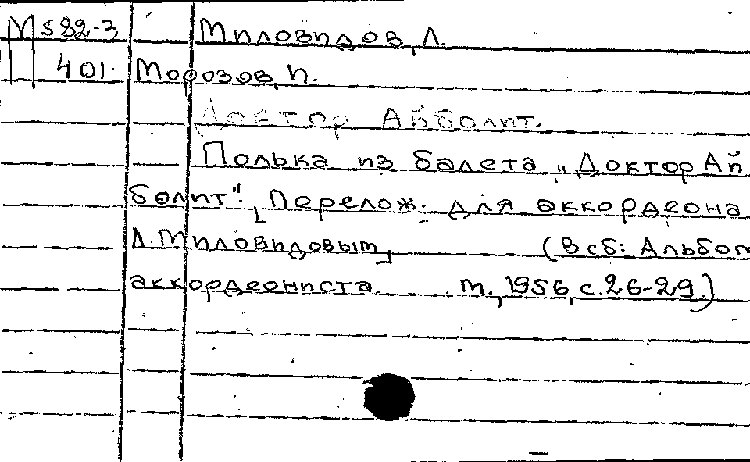 М 582-3 Миловидов, Л.
401 Морозов, И.
Доктор Айболит.
Полька из балета "Доктор Ай
болит". [Перелож. для аккордеона
Л. Миловидовым]. (В сб: Альбом
аккордеониста. М., 1956, с. 26-29.)